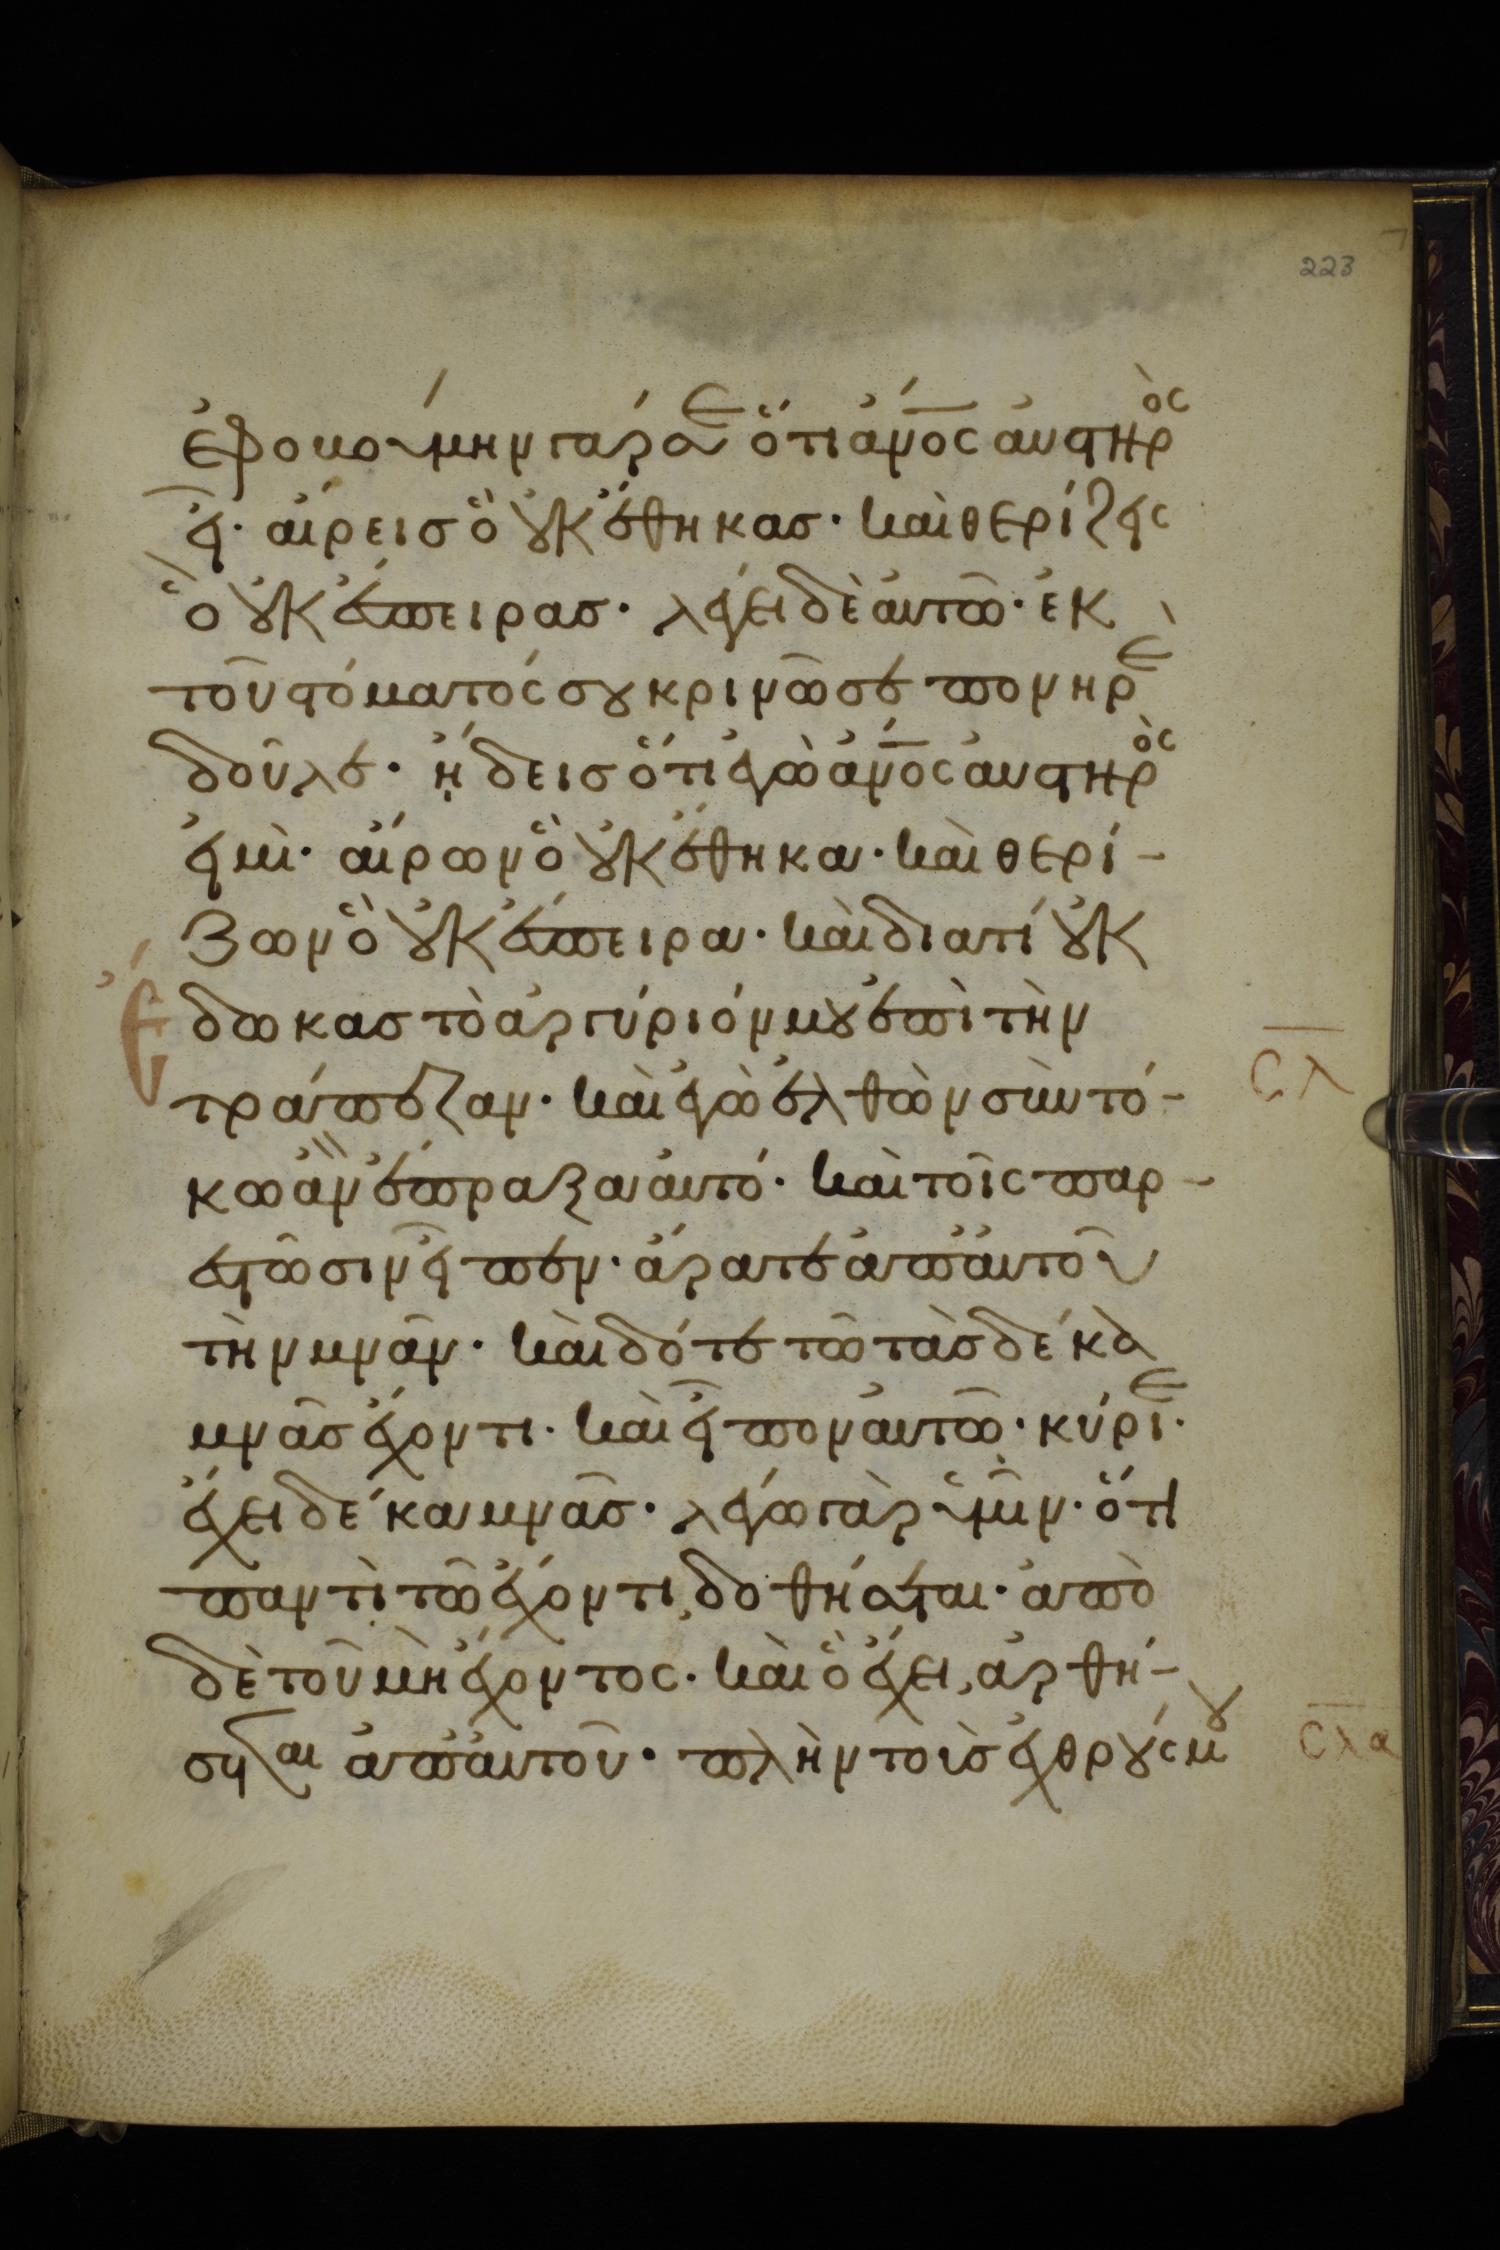 223
ἐφοβούμην γάρ σε ὅτι ἄνος αὐστηρὸς
εἶ· αἴρεις ὃ οὐκ ἔθηκας· καὶ θερίζεις
ὃ οὐκ ἔσπειρας· λέγει δὲ αὐτῶ· ἐκ
τοῦ στόματός σου κρινῶ σε πονηρὲ
δοῦλε· ᾔδεις ὅτι ἐγὼ ἄνος αὐστηρὸς
εἰμὶ· αἴρων ὃ οὐκ ἔθηκα· καὶ θερί-
ζων ὃ οὐκ ἔσπειρα· καὶ διατί οὐκ
ἔδωκας τὸ ἀργύριόν μου ἐπὶ τὴν
τράπεζαν· καὶ ἐγὼ ἐλθὼν σὺν τό-
κω ἂν ἔπραξα αὐτό· καὶ τοῖς παρ-
εστῶσιν εἶπεν· ἄρατε ἀπ' αὐτοῦ
τὴν μνᾶν· καὶ δότε τῶ τὰς δέκα
μνᾶς ἔχοντι· καὶ εἶπον αὐτῶ· κύριε·
ἔχει δέκα μνᾶς· λέγω γὰρ ὑμῖν· ὅτι
παντὶ τῶ ἔχοντι, δοθήσεται· ἀπὸ
δὲ τοῦ μὴ ἔχοντος· καὶ ὃ ἔχει, ἀρθή-
σεται ἀπ' αὐτοῦ· πλὴν τοὺς ἐχθρούς μου
σλ
σλα